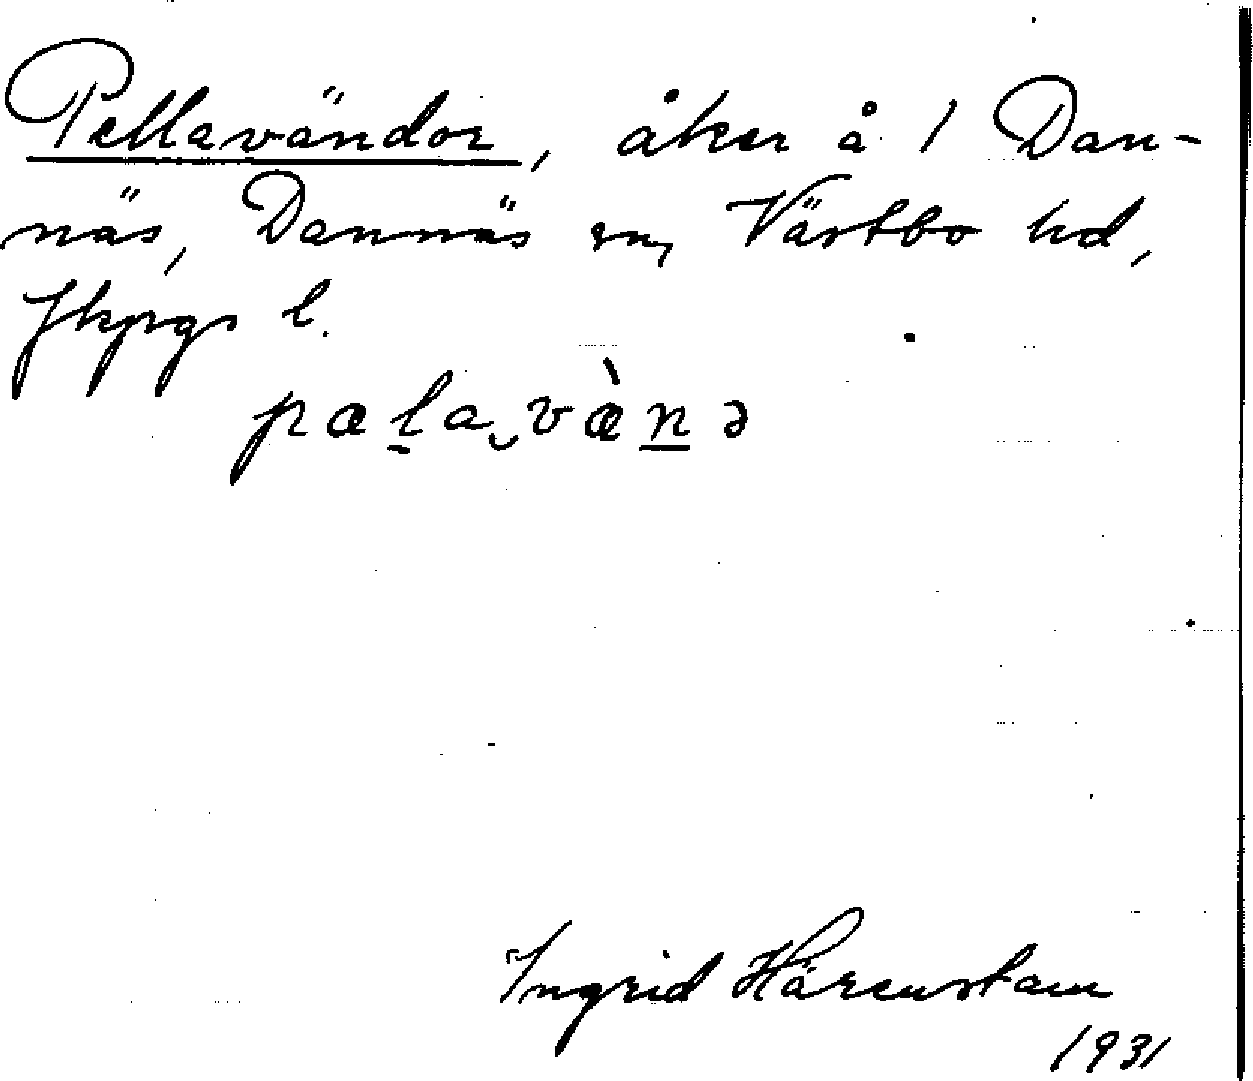 Pellavändor, åker å 1 Dan-
näs, Dannäs sn, Västbo hd,
Jkpgs l.
pælavæ̀nə
Ingrid Härenstam
1931